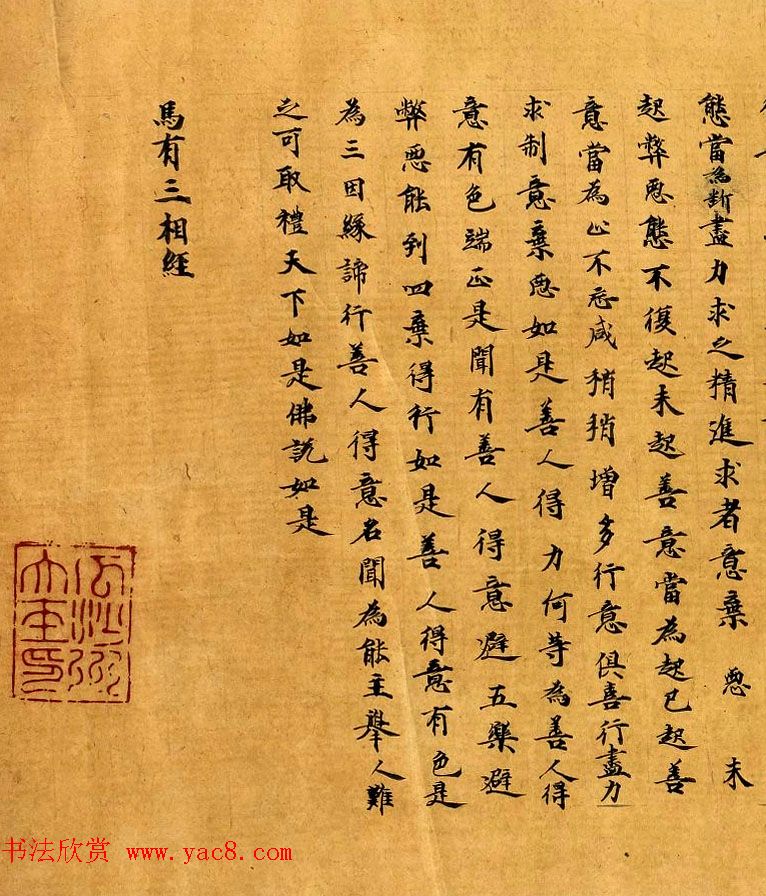 態當為断盡力求之精進求者意棄惡未
起弊惡態不復起未起善意當為起已起善
意當為止不忘咸稍稍增多行意俱喜行盡力
求制意棄惡如是善人得力何等為善人得
意有色端正是聞有善人得意避五樂避
弊惡能到四棄得行如是善人得意有色是
為三因緣諦行善人得意名聞為能主舉人難
之可取禮天下如是佛説如是
馬有三相經
书法欣赏 www.yac8.com